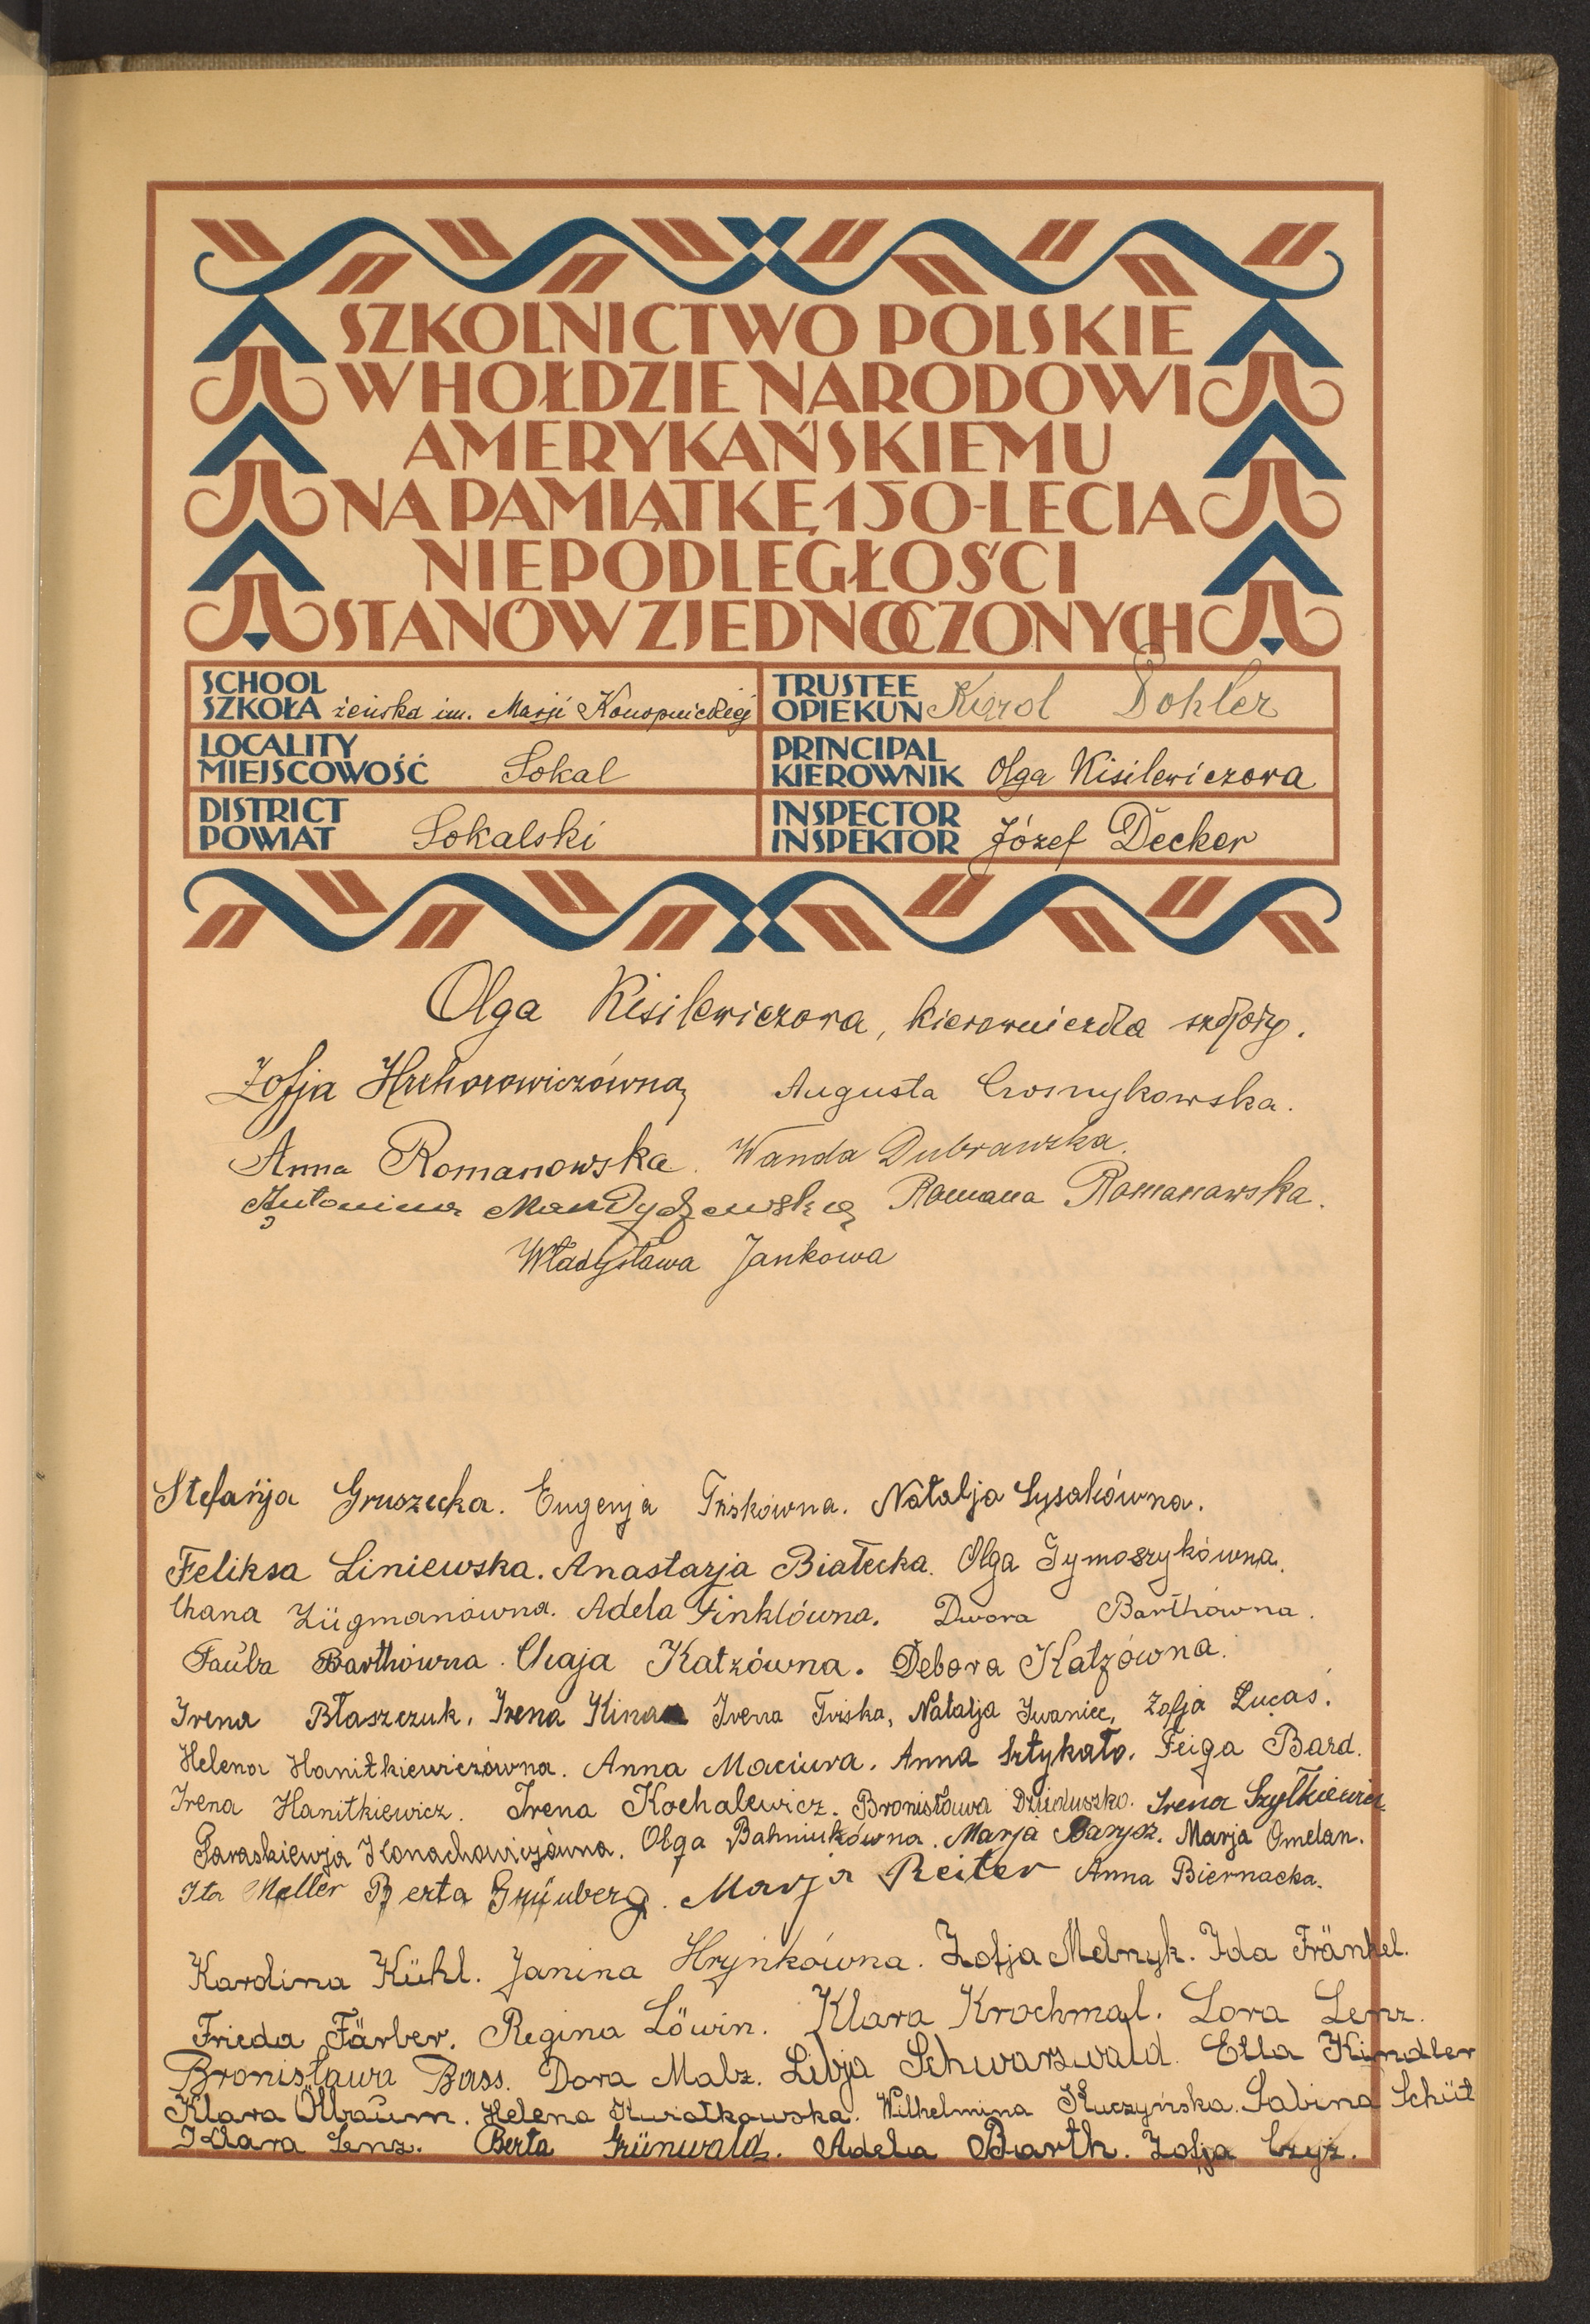 SZKOLNICTWO POLSKIE
W HOŁDZIE NARODOWI
AMERYKAŃSKIEMU
NA PAMIĄTKĘ 150-LECIA
NIEPODLEGŁOŚCI
STANÓW ZJEDNOCZONYCH
SCHOOL
SZKOŁA żeńska im. Marji Konopnickiej
TRUSTEE
OPIEKUN Karol Dohler
LOCALITY
MIEJSCOWOŚĆ Sokal
PRINCIPAL
KIEROWNIK Olga Kisilewiczowa
DISTRICT
POWIAT Sokalski
INSPECTOR
INSPEKTOR Józef Decker
Olga Kisilewiczowa, kierowniczka szkoły.
Zofja Hrehorowiczówna Augusta Crosnykowska.
Anna Romanowska. Wanda Dubrawska.
Antonina Mandydzewska Romana Romanowska.
Władysława Jankowa
Stefanja Gruszecka. Eugenja Triskówna. Natalja Łysakówna.
Feliksa Liniewska. Anastazja Białecka. Olga Tymoszykówna.
Chana Zügmanówna. Adela Finklówna. Dwora Barthówna.
Taúba Barthówna. Chaja Katzówna. Debora Katzówna.
Irena Błaszczuk. Irena Klina Irena Triska, Natalja Iwaniec, Zofja Łucaś.
Helena Hanitkiewiczówna. Anna Maciura. Anna Sztykało. Feiga Bard.
Irena Hanitkiewicz. Irena Kochalewicz. Bronisława Dziduszko. Irena Szytkiewicz
Paraskiewja Konachowiczówna. Olga Bahniukówna. Marja Barysz. Marja Omelan.
Ita Meller Berta Grünberg. Marja Reiter Anna Biernacka.
Karolina Kühl. Janina Hryńkówna. Zofja Melnyk. Ida Fränkel.
Frieda Färber. Regina Löwin. Klara Krochmal. Lora Lenz.
Bronisława Bass. Dora Malz. Libja Schwarzwald. Etla Kindler
Klara Ölbaum. Helena Kwiatkowska. Wilhelmina Kuczyńska. Sabina Schüt
Klara Lenz. Berta Grünwald. Adela Barth. Zofja Czyż.